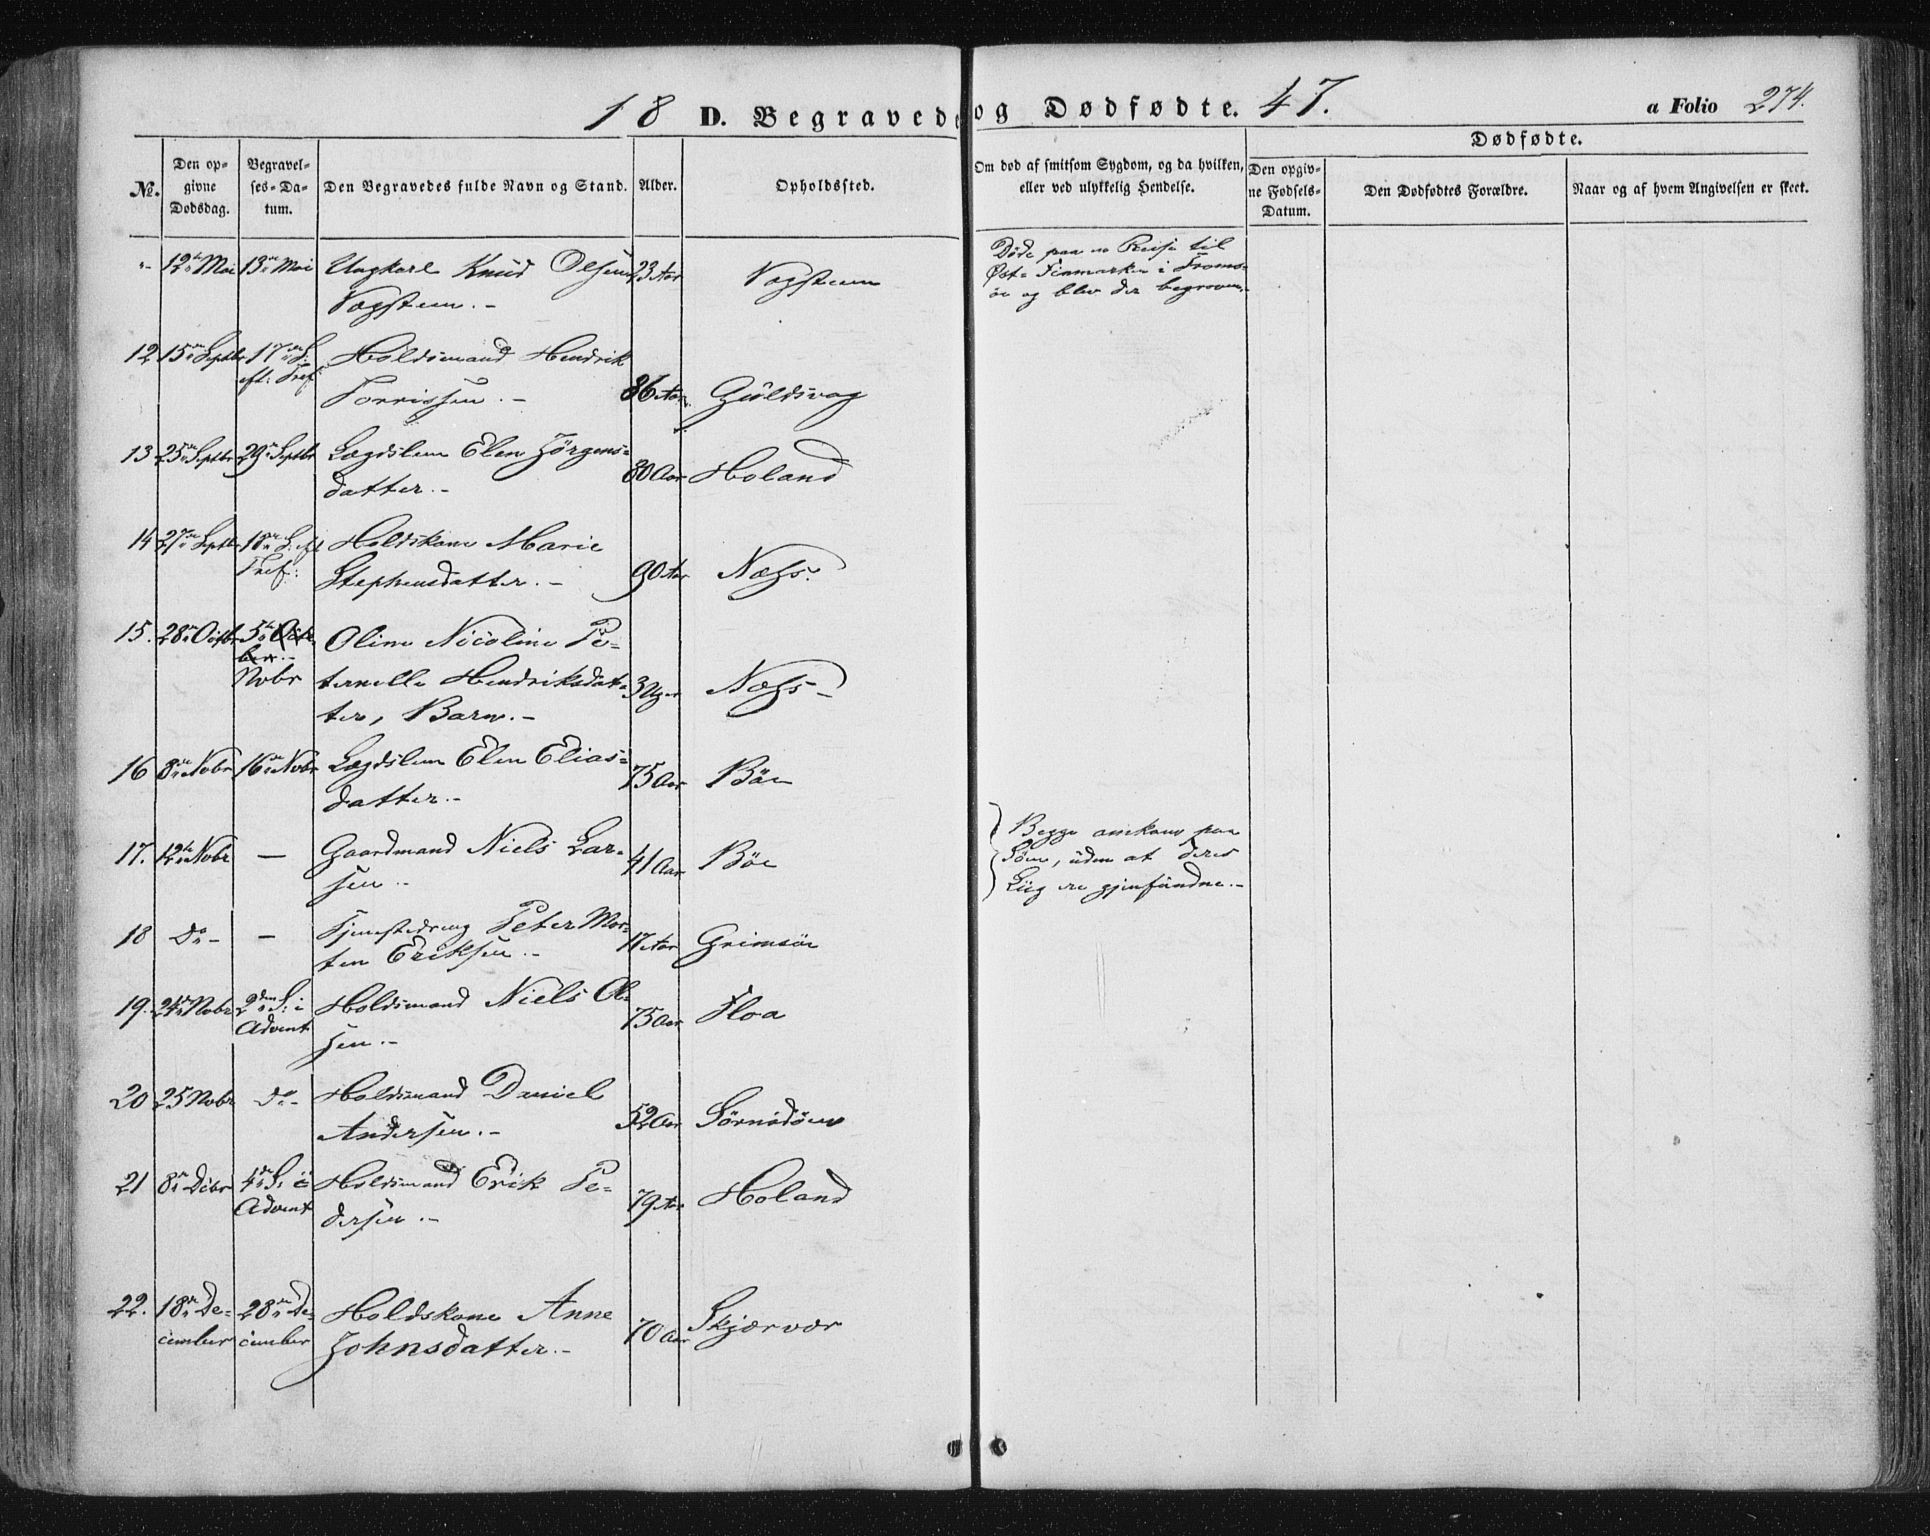 18 D. Begravede og Dødfødte. 47. a Folio 274.
Dødfødte.
No. Den opgivne Dødsdag. Begravelses-Datum. Den Begravedes fulde Navn og Stand. Alder. Opholdssted. Om død af smitsom Sygdom, og da hvilken, eller ved ulykkelig Hendelse. Den opgivne Fødsels-Datum. Den Dødfødtes Forældre. Naar og af hvem Angivelsen er skeet.
"- 12te Mai 13de Mai Ungkarl Knud Olsen 23 Aar Vogsteen Døde paa en Reise til
Vogsteen.- Øst-Finmarken i Troms-
øe og blev der begraven.
12 15de Septbr 17de S. Holdsmand Hendrik
eft: Tref: Torrissen.- 86 Aar Guldsvog
13 25de Septbr 29de Septbr Lægdslem Elen Jørgens-
datter.- 80 Aar Holand
14 27de Septbr 18de S. eft Holdskone Marie
Tref: Stephensdatter.- 90 Aar Næss.
15. 28de Octbr 5te Octo- Oline Nicoline Pe-
ber.-
Nobr ternelle Hendriksdat- 3 Uger Næss-
ter, Barn.-
16 8de Nobr 16de Nobr Lægdslem Elen Elias-
datter.- 75 Aar Böe
17. 12te Nobr — Gaardmand Niels Lar- 41 Aar Böe Begge omkom paa
sen.- Söen, uden at deres
Liig ere gjenfundne.-
18 Do- — Tjenestedreng Peter Mor-
ten Eriksen.- 17 Aar Grimsöe
19. 24de Nobr 2den S: i Holdsmand Niels Ol-
Advent sen.- 75 Aar Floa
20 25 Nobr Do- Holdsmand Daniel
Andersen.- 52 Aar
21 8de Dcbr 4de S. i Holdsmand Erik Pe-
Advent dersen.- 79 Aar Holand
22. 18de De- 28de De- Holdskone Anne
cember cember Johnsdatter.- 70 Aar Skjærvær